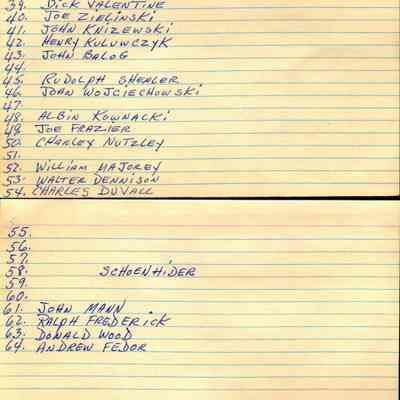 39. DICK VALENTINE
40. JOE ZIELINSKI
41. JOHN KNIZEWSKI
42. HENRY KULUWCZYK
43. JOHN BALOG
44.
45. RUDOLPH SHEALER
46. JOAN WOJCIECHOWSKI
47.
48. ALBIN KOWNALKI
49. JOE FRAZIER
50. CHARLEY NUTZLEY
51.
52. WILLIAM MAJOREY
53. WALTER DENNISON
54. CHARLES DUVALL
55.
56.
57.
58. SCHOENHIDER
59.
60.
61. JOHN MANN
62. RALPH FREDERICK
63. DONALD WOOD
64. ANDREW FEDOR